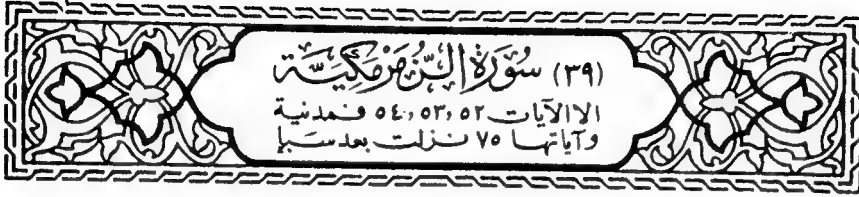 (٣٩) سُورَة الزُّمَر مَكِّيَّة
الا الآيات ٥٢ ، ٥٣ ، ٥٤ فمدنية
وآياتها ٧٥ نزلت بعد سَبَإ